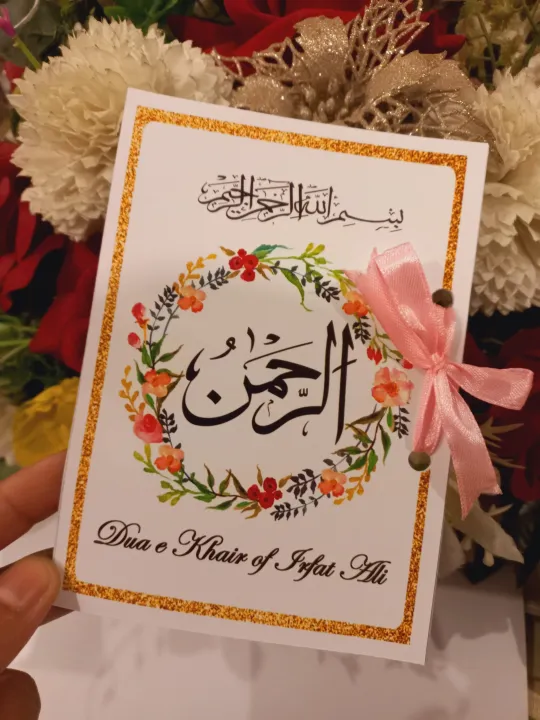 بسم الله الرحمن الرحيم
الرَّحْمٰنُ
Dua e Khair of Irfat Ali